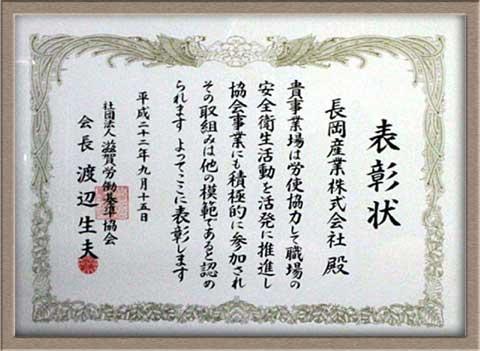 表彰状
長岡産業株式会社 殿
貴事業場は労使協力して職場の
安全衛生活動を活発に推進し
協会事業にも積極的に参加され
その取組みは他の模範であると認め
られます よってここに表彰します
平成二十二年九月十五日
社団法人 滋賀労働基準協会
会長 渡辺生夫